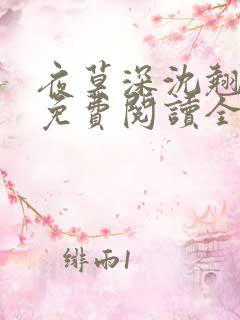 夜莫深沈翹
免費閱讀全
緋雨1